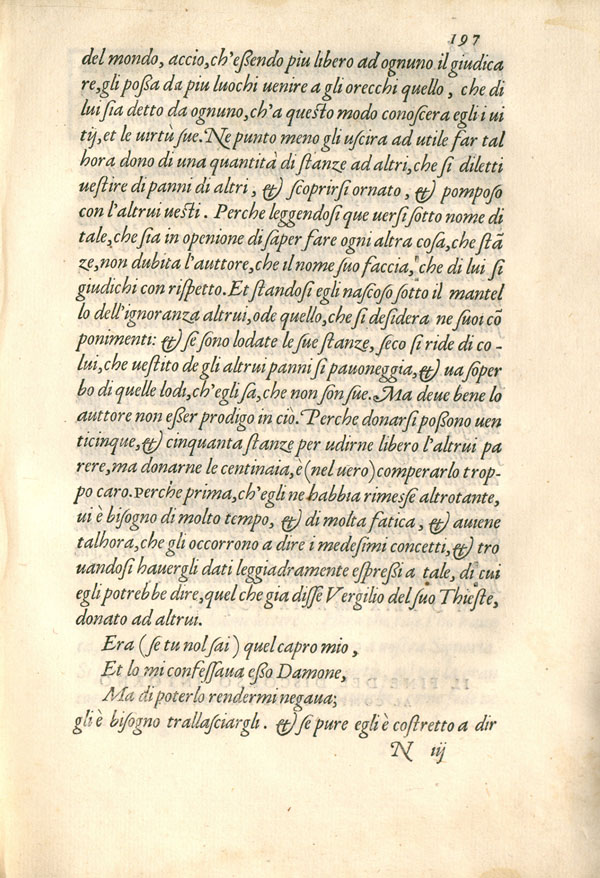 197
del mondo, accio, ch'eßendo più libero ad ognuno il giudica
re, gli poßa da piu luochi uenire a gli orecchi quello, che di
lui sia detto da ognuno, ch'a questo modo conoscera egli i ui
tij, et le uirtù sue. Ne punto meno gli uscira ad utile far tal
hora dono di una quantità di stanze ad altri, che si diletti
uestire di panni di altri, & scoprirsi ornato, & pomposo
con l'altrui uesti. Perche leggendosi que uersi sotto nome di
tale, che sia in openione di saper fare ogni altra cosa, che stā
ze, non dubita l'auttore, che il nome suo faccia, che di lui si
giudichi con rispetto. Et standosi egli nascoso sotto il mantel
lo dell'ignoranza altrui, ode quello, che si desidera ne suoi cō
ponimenti: & se sono lodate le sue stanze, seco si ride di co-
lui, che uestito de gli altrui panni si pauoneggia, & ua soper
bo di quelle lodi, ch'egli sa, che non son sue. Ma deue bene lo
auttore non eßer prodigo in ciò. Perche donarsi poßono uen
ticinque, & cinquanta stanze per udirne libero l'altrui pa
rere, ma donarne le centinaia, è (nel uero) comperarlo trop-
po caro. perche prima, ch'egli ne habbia rimesse altrotante,
ui è bisogno di molto tempo, & di molta fatica, & auiene
talhora, che gli occorrono a dire i medesimi concetti, & tro
uandosi hauergli dati leggiadramente espreßi a tale, di cui
egli potrebbe dire, quel che gia disse Vergilio del suo Thieste,
donato ad altrui.
Era (se tu nol sai) quel capro mio,
Et lo mi confessaua eßo Damone,
Ma di poterlo rendermi negaua;
gli è bisogno trallasciargli. & se pure egli è costretto a dir
N iij